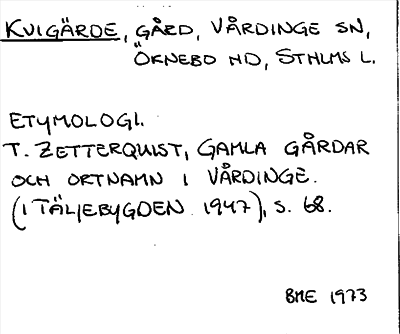 KVIGÄRDE, GÅRD, VÅRDINGE SN,
ÖKNEBO HD, STHLMS L.
ETYMOLOGI.
T. ZETTERQUIST, GAMLA GÅRDAR
OCH ORTNAMN I VÅRDINGE.
(I TÄLJEBYGDEN 1947), S. 68.
BME 1973